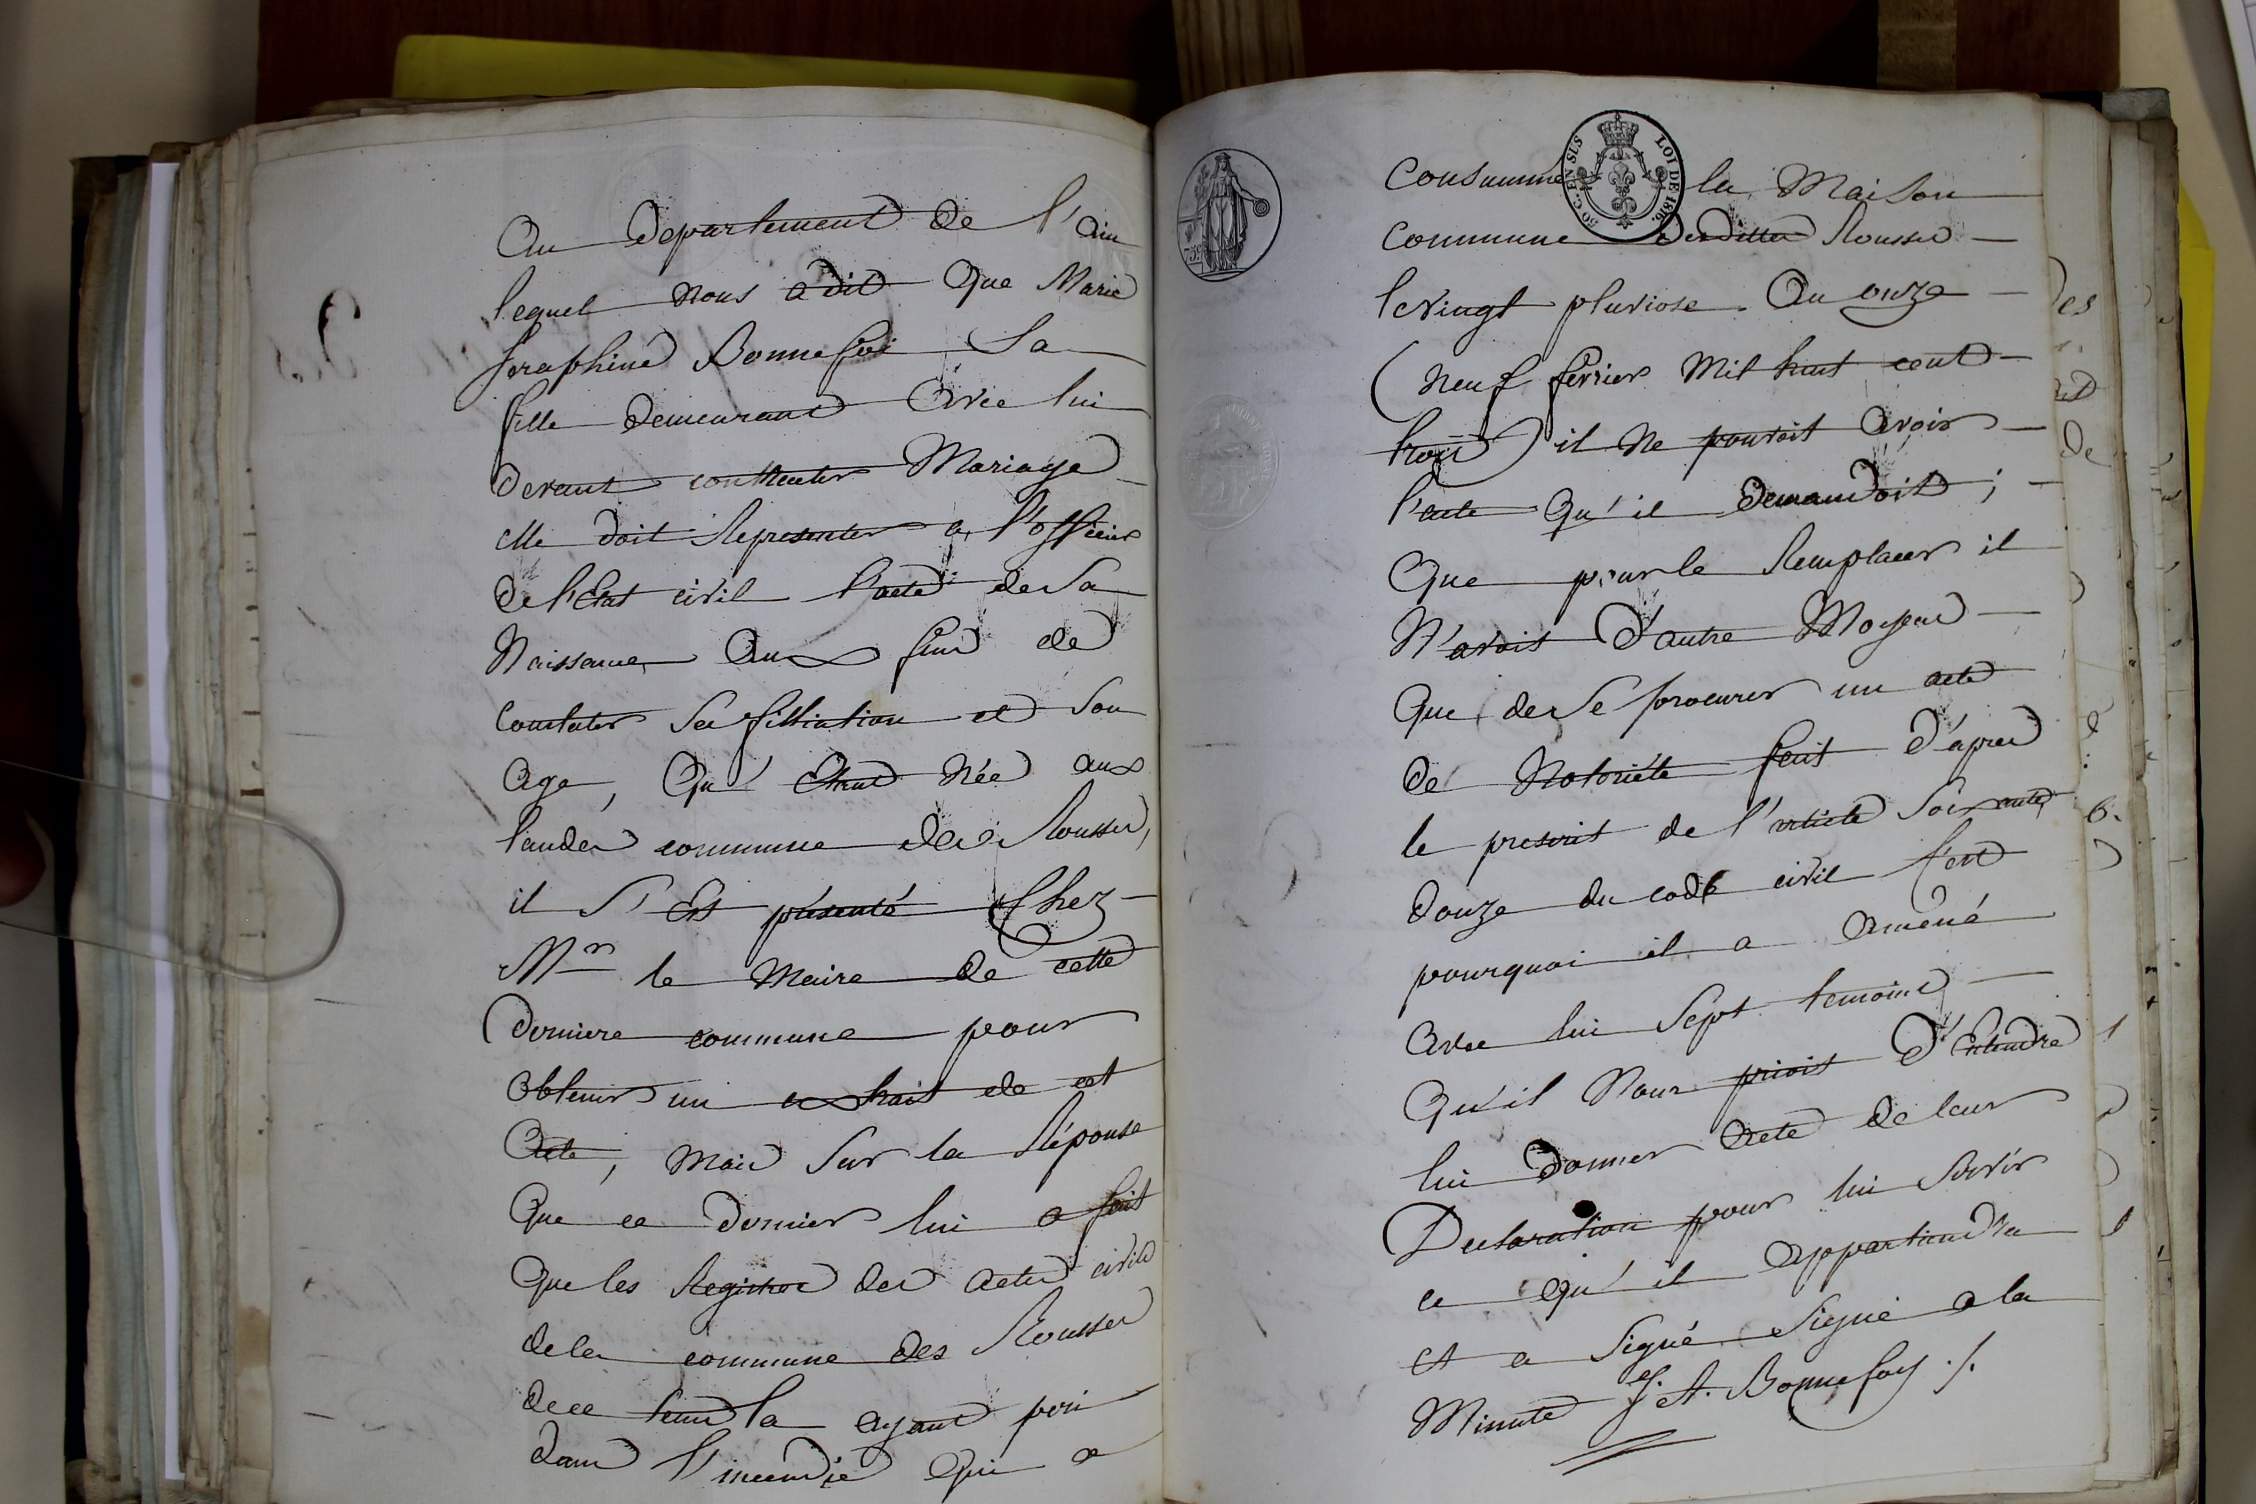 Au departement de l'ain
lequel nous a dit Que Marie
seraphine Bonnefoi sa
fille demeurant avec lui
devant contracter Mariage
elle doit Representer a l'officier
de l'Etat civil l'acte de sa
Naissance aux fins de
Constater sa filliation et son
age, Qu' etant Née aux
landes commune des Rousses,
il s'est présenté Chez
Mr le Maire de cette
derniere commune pour
obtenir un extrait de cet
acte, Mais sur la Réponse
Que ce dernier lui a fait
Que les Registres des actes civils
de la commune des Rousses
de ce tems la ayant peri
dans l'incendie Qui a
50 C. EN SUS LOI DE 1816.
75
Consummé la Maison
Commune desdittes Rousses
le vingt pluviose An onze
(Neuf fevrier Mil huit cent
trois) il Ne pouvoit avoir
l'acte Qu'il demandoit ;
Que pour le Remplacer il
N'avoit d'autre Moyen
Que de se procurer un acte
de Notoriété fait d'après
le prescrit de l'article soixante
douze du code civil c'est
pourquoi il a amené
avec lui sept temoins
Qu'il Nous prioit d'Entendre
lui donner acte de leur
Declaration pour lui servir
ce qu'il appartiendra
et a signé Signé a la
Minute J. A. Bonnefoy ./.
des
de